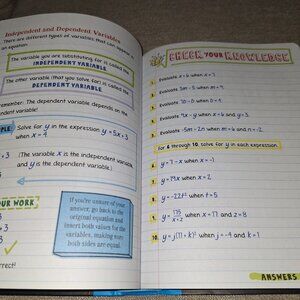 Independent and Dependent Variables
There are different types of variables that can appear in
an equation:
The variable you are substituting for is called the
INDEPENDENT VARIABLE.
The other variable (that you solve for) is called the
DEPENDENT VARIABLE.
Remember: The dependent variable depends on the
independent variable!
Solve for y in the expression y = 5x + 3
when x = 4
(The variable x is the independent variable
and y is the dependent variable.)
YOUR WORK
If you're unsure of
your answer,
go back to the
original equation and
insert both values for the
variables, making sure
both sides are equal.
CHECK YOUR KNOWLEDGE
1. Evaluate
when x = 7.
2. Evaluate 3m - 5 when m = 9.
3. Evaluate
4. Evaluate
when x = 6 and y = 3.
5. Evaluate -5m - 2n when m = 6 and n = -2.
For 6 through 10, solve for y in each expression.
6. y = 7 - x when x = -1
7.
8. y = -22t² when t = 5
9. y =
when x = 77 and z = 8
10. y = j(11 + k)² when j = -4 and k = 1
ANSWERS